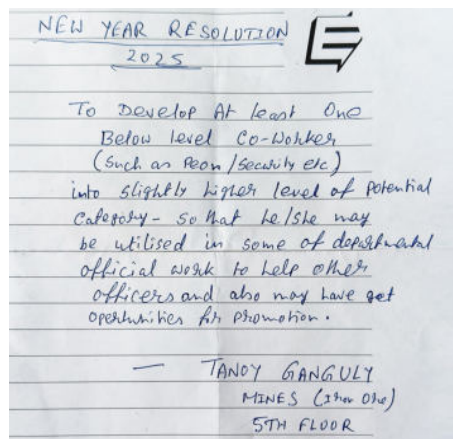 NEW YEAR RESOLUTION
2025
To Develop At least One
Below level Co-Worker
(Such as Peon/Security etc)
into slightly higher level of potential
Category - so that he/she may
be utilised in some of departmental
official work to help other
officers and also may have get
opertunities for promotion.
— TANOY GANGULY
MINES (Iron Ore)
5TH FLOOR